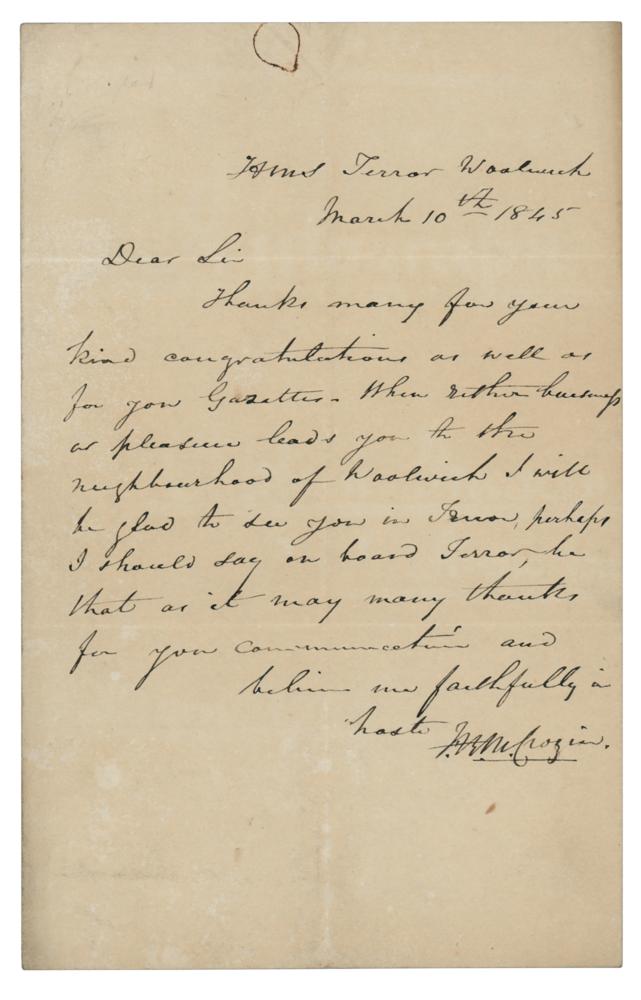 HMS Terror Woolwich
March 10th 1845
Dear Sir
Thanks many for your
kind congratulations as well as
for your Gazette. When either business
or pleasure leads you to the
neighbourhood of Woolwich I will
be glad to see you in Terror, perhaps
I should say on board Terror, be
that as it may many thanks
for your communication and
believe me faithfully in
haste F.R.M. Crozier.